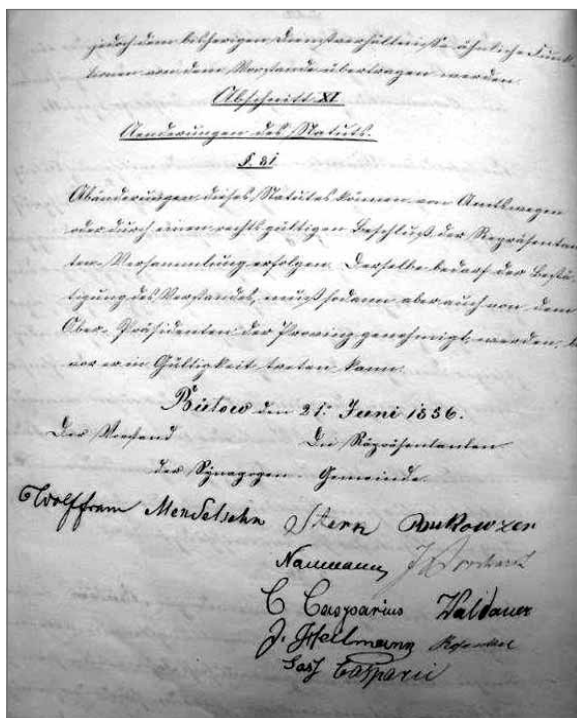 jedoch dem bisherigen Dienstverhältnisse ähnliche Funk-
tionen von dem Vorstande übertragen werden.
Abschnitt XI
Aenderungen des Statuts.
§. 81
Abänderungen dieses Statutes können von Amtswegen
oder durch einen rechtsgültigen Beschluß der Repräsentan-
ten-Versammlung erfolgen. Derselbe bedarf der Bestä-
tigung des Vorstandes, muß sodann aber auch von dem
Ober-Präsidenten der Provinz genehmigt werden, be
vor er in Gültigkeit treten kann.
Bütow den 21. Juni 1856.
Der Vorstand Die Räpräsentanten
der Synagogen-Gemeinde.
Wolffram Mendelsohn Stern
Naumann
C Casparius Waldauer
J. Heilmann
Casparii